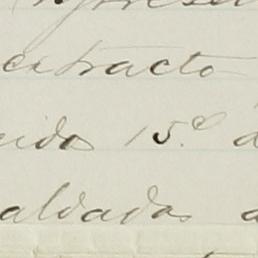 extracto
cido 15.º d
aldadas a